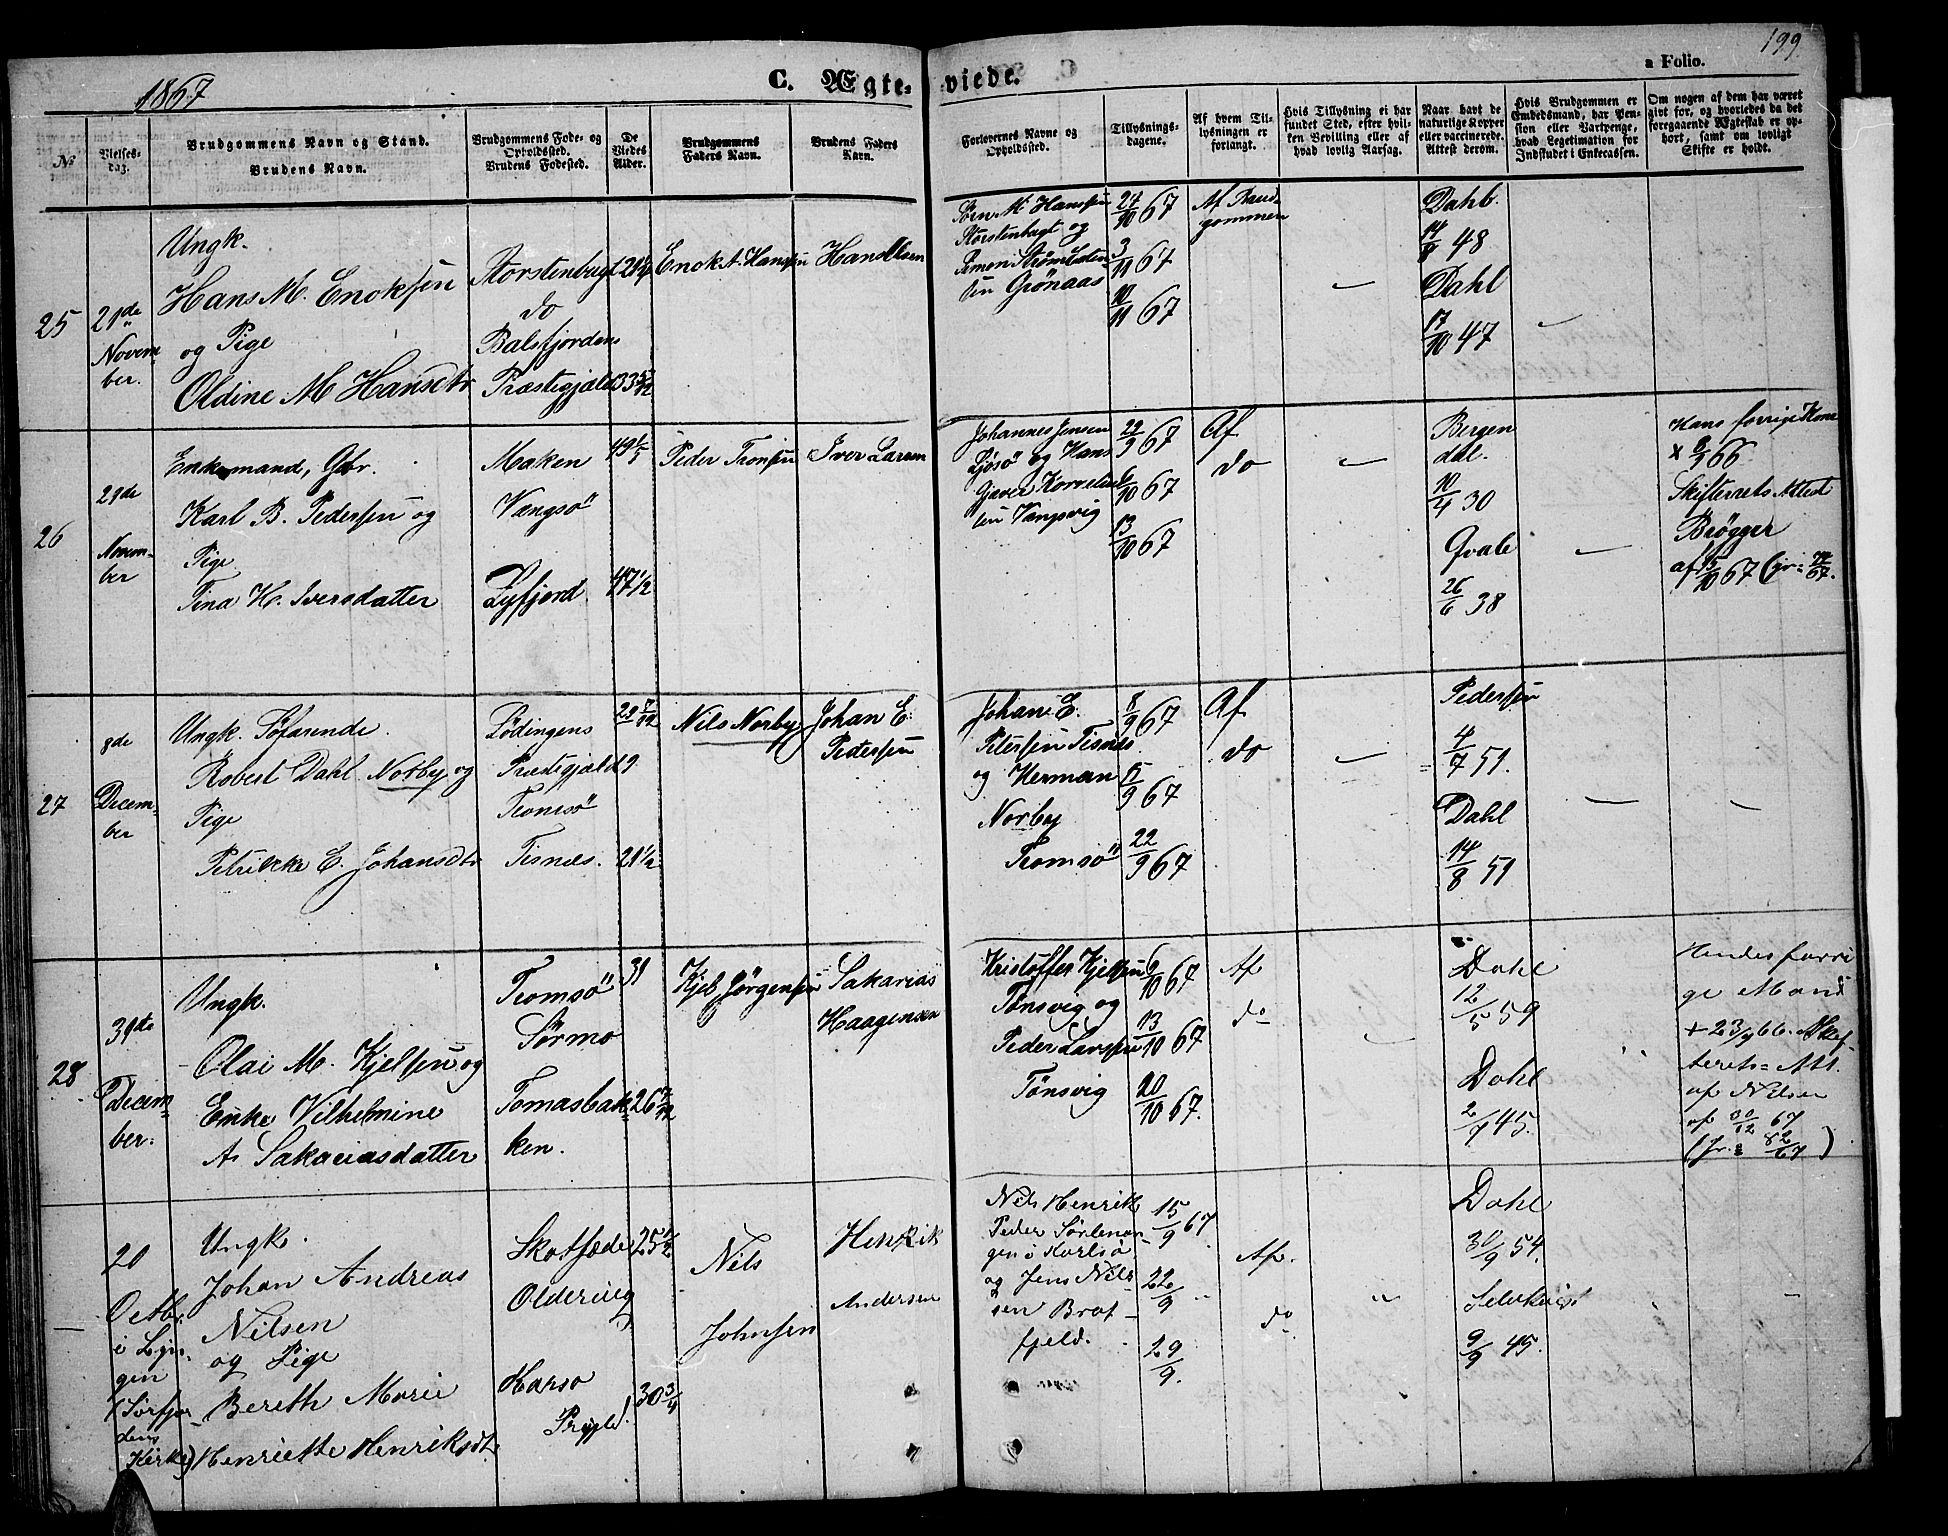 1867
C. Ægte-
viede.
199
a Folio.
No
Vielses-
dag.
Brudgommens Navn og Stand.
Brudens Navn.
Brudgommens Føde- og
Opholdssted.
Brudens Fødested.
De
Viedes
Alder.
Brudgommens
Faders Navn.
Brudens Faders
Navn.
Forlovernes Navne og
Opholdssted.
Tillysnings-
dagene.
Af hvem Til-
lysningen er
forlangt.
Hvis Tillysning ei har
fundet Sted, efter hvil-
ken Bevilling eller af
hvad lovlig Aarsag.
Naar havt de
naturlige Kopper
eller vaccinerede.
Attest derom.
Hvis Brudgommen er
Embedsmand, har Pen-
sion eller Vartpenge,
hvad Legitimation for
Indskudet i Enkecassen.
Om nogen af dem har været
gift før, og hvorledes da det
foregaaende Ægteskab er op-
hørt, samt om lovligt
Skifte er holdt.
25
21de
Novem-
ber.
Ungk.
Hans M. Enoksen
og Pige
Oldine M Hansdtr
Storstenbugt
do
Balsfjordens
Præstegjæld
33 5/12
Enok A. Hansen
Hans Olsen
Søren M Hansen
Storstenbugt og
Simon
Grønaas
27/10 67
3/11 67
10/11 67
Af Brud-
gommen
—
Dahl.
14/8 48
Dahl
17/10 47
—
26
29de
Novem-
ber
Enkemand, Gbr.
Karl B. Pedersen og
Pige
Tina H. Iversdatter
Maken
Vængsø
Lyfjord
47 1/2
Peder Tronsen
Iver Larsen
Johannes Jensen
og Hans
Gjæver
Vangsvig
29/9 67
6/10 67
13/10 67
Af
do
—
Bergen
dal.
10/4 30
Qvale
26/6 38
—
Hans forrige Kone
66
Skifterets Attest
Brøgger
af 15/10 67
27
8de
Decem-
ber
Ungk. Søfarende.
Robert Dahl Norby og
Pige
Petrikke E. Johansdtr
Lødingens
Præstegjæld
Tromsø
Tisnæs.
21 1/2
Nils Norby
Johan E.
Pedersen
Johan E.
Petersen Tisnæs
og Herman
Norby
Tromsø
8/9 67
15/9 67
22/9 67
Af
do
—
Pedersen
4/7 51.
Dahl
14/8 51
—
—
28
31te
Decem-
ber.
Ungk.
Olai M. Kjelsen og
Enke Vilhelmine
A. Sakariasdatter
Tromsø
Sørmo
Tomasbak-
ken.
31
26 7/12
Kjel Jørgensen
Sakarias
Haagensen
Kristoffer Kjelsen
Tønsvig og
Peder Larsen
Tønsvig
6/10 67
13/10 67
20/10 67.
Af
do
—
Dahl
12/5 59
Dahl
2/7 45.
Hendes forri
ge Mand
Skif-
terets-Att.
af Nilsen
af 30/12 67
(Jr: 82/67)
20
Octbr.
i Lyn-
gen
(Sørfjor-
dens
Kirke)
Ungk.
Johan Andreas
Nilsen
og Pige
Bereth Marie
Henriette Henriksdt.
Oldervig
Karlsø
Prgjld.
30 3/4
Nils
Johnsen
Henrik
Andersen
Nils Henrik
Peder
i Karlsø
og Jens Nil-
sen Brat-
fjeld.
15/9 67
22/9 "
29/9.
Af.
do
"
Dahl
30/9 54.
9/9 45.
-